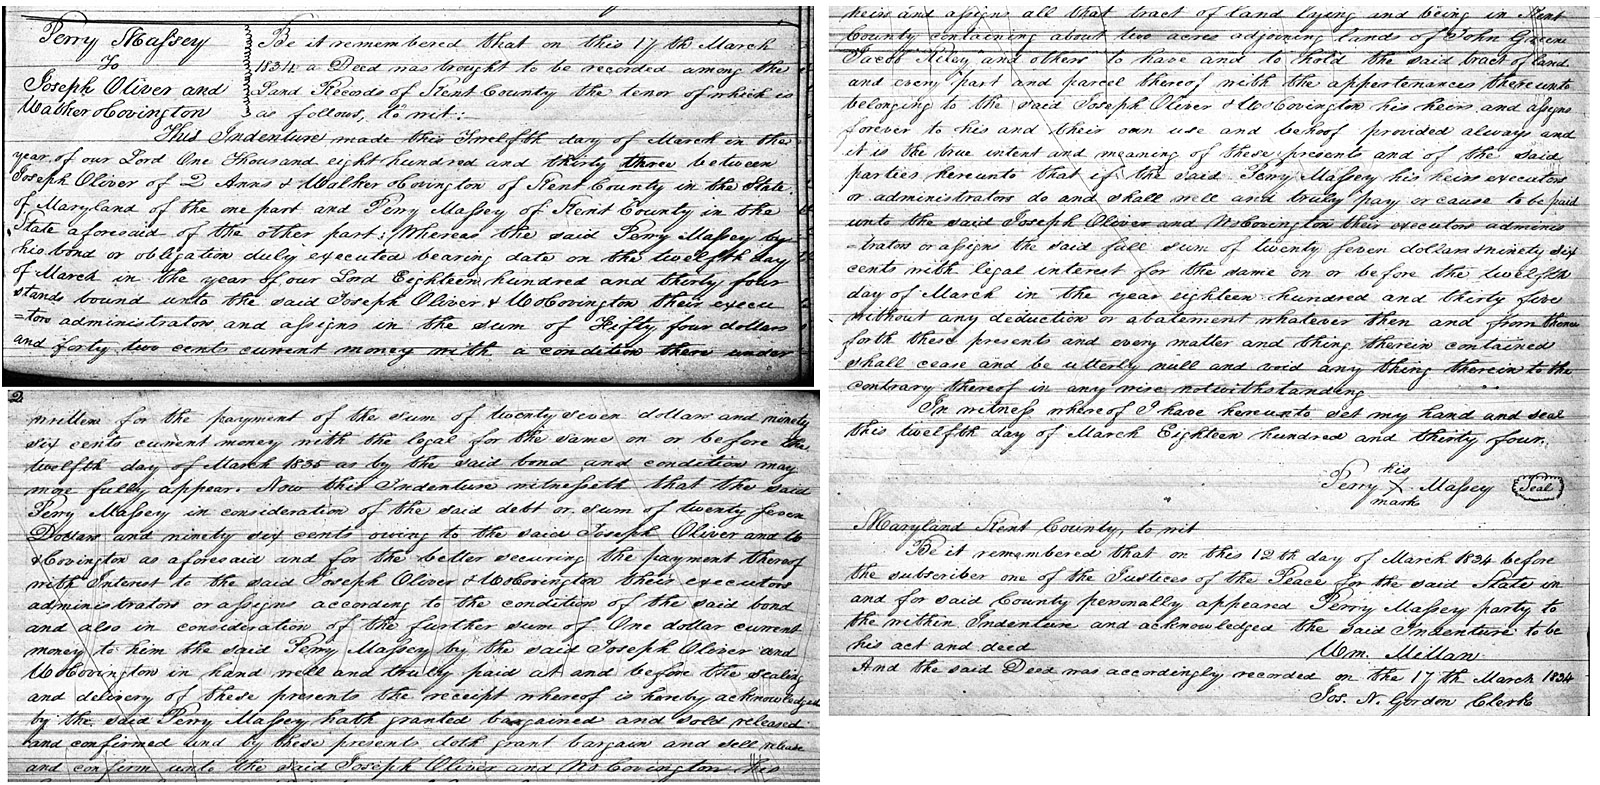 Perry Massey
To
Joseph Oliver and
Walker Covington
Be it remembered that on this 17th March
1834 a Deed was brought to be recorded among the
Land Records of Kent County the tenor of which is
as follows, to wit:
This Indenture made this Twelfth day of March in the
year of our Lord One Thousand eight hundred and thirty three between
Joseph Oliver of 2 Anns & Walker Covington of Kent County in the State
of Maryland of the one part and Perry Massey of Kent County in the
State aforesaid of the other part: Whereas the said Perry Massey by
his bond or obligation duly executed bearing date on the twelfth day
of March in the year of our Lord Eighteen hundred and thirty four
stands bound unto the said Joseph Oliver & W Covington their execu
=tors administrators and assigns in the sum of Fifty four dollars
and forty two cents current money with a condition there under
2
written for the payment of the sum of twenty seven dollars and ninety
six cents current money with the legal for the same on or before the
twelfth day of March 1835 as by the said bond and condition may
more fully appear. Now this Indenture witnesseth that the said
Perry Massey in consideration of the said debt or sum of twenty seven
Dollars and ninety six cents owing to the said Joseph Oliver and W
Covington as aforesaid and for the better securing the payment thereof
with Interest to the said Joseph Oliver & W Covington their executors
administrators or assigns according to the condition of the said bond
and also in consideration of the further sum of One dollar current
money to him the said Perry Massey by the said Joseph Oliver and
W Covington in hand well and truly paid at and before the sealing
and delivery of these presents the receipt whereof is hereby acknowledged
by the said Perry Massey hath granted bargained and sold released
and confirmed and by these presents doth grant bargain and sell release
and confirm unto the said Joseph Oliver and W Covington his
heirs and assigns all that tract of land laying and being in Kent
County containing about two acres adjoining land of John Green
Jacob Kiley and others to have and to hold the said tract of land
and every part and parcel thereof with the appertenances thereunto
belonging to the said Joseph Oliver & W Covington his heirs and assigns
forever to his and their own use and behoof provided always and
it is the true intent and meaning of these presents and of the said
parties hereunto that if the said Perry Massey his heirs executors
or administrators do and shall well and truly pay or cause to be paid
unto the said Joseph Oliver and W Covington their executors adminis
=trators or assigns the said full sum of twenty seven dollars ninety six
cents with legal interest for the same on or before the twelfth
day of March in the year eighteen hundred and thirty five
without any deduction or abatement whatever then and from thence
forth these presents and every matter and thing therein contained
shall cease and be utterly null and void any thing therein to the
contrary thereof in any wise notwithstanding
In witness whereof I have hereunto set my hand and seal
this twelfth day of March Eighteen hundred and thirty four.
his
Perry X Massey Seal
mark
Maryland Kent County, to wit
Be it remembered that on this 12th day of March 1834 before
the subscriber one of the Justices of the Peace for the said State in
and for said County personally appeared Perry Massey party to
the within Indenture and acknowledged the said Indenture to be
his act and deed
Wm. Millan
And the said Deed was accordingly recorded on the 17th March 1834
Jos. N. Gordon Clerk